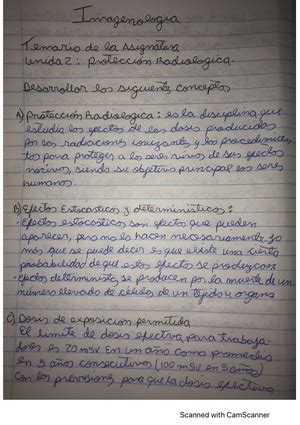 Imagenologia
Temario de la Asignatura
Unidad 2: Protección Radiologica.
Desarrollar los siguiente conceptos
A) Protección Radiologica: es la disciplina que
estudia los efectos de las dosis producidas
por las radiaciones ionizantes y los procedimien
tos para proteger a los seres vivos de sus efectos
nocivos, siendo su objetivo principal los seres
humanos.
B) Efectos Estocásticos y deterministicos:
-Efectos estocásticos son efectos que pueden
aparecer, pero no lo hacen necesariamente, lo
más que se puede decir es que existe una cierta
probabilidad de que estos efectos se produzcan
-efectos determinista se producen por la muerte de un
número elevado de células de un tejido u organo
C) Dosis de exposicion permitida
El limite de dosis efectiva para trabaja
dores es 20 mSv en un año como promedio
en 5 años consecutivos (100 mSv en 5 años)
con las previsiones para que la dosis efectiva
Scanned with CamScanner